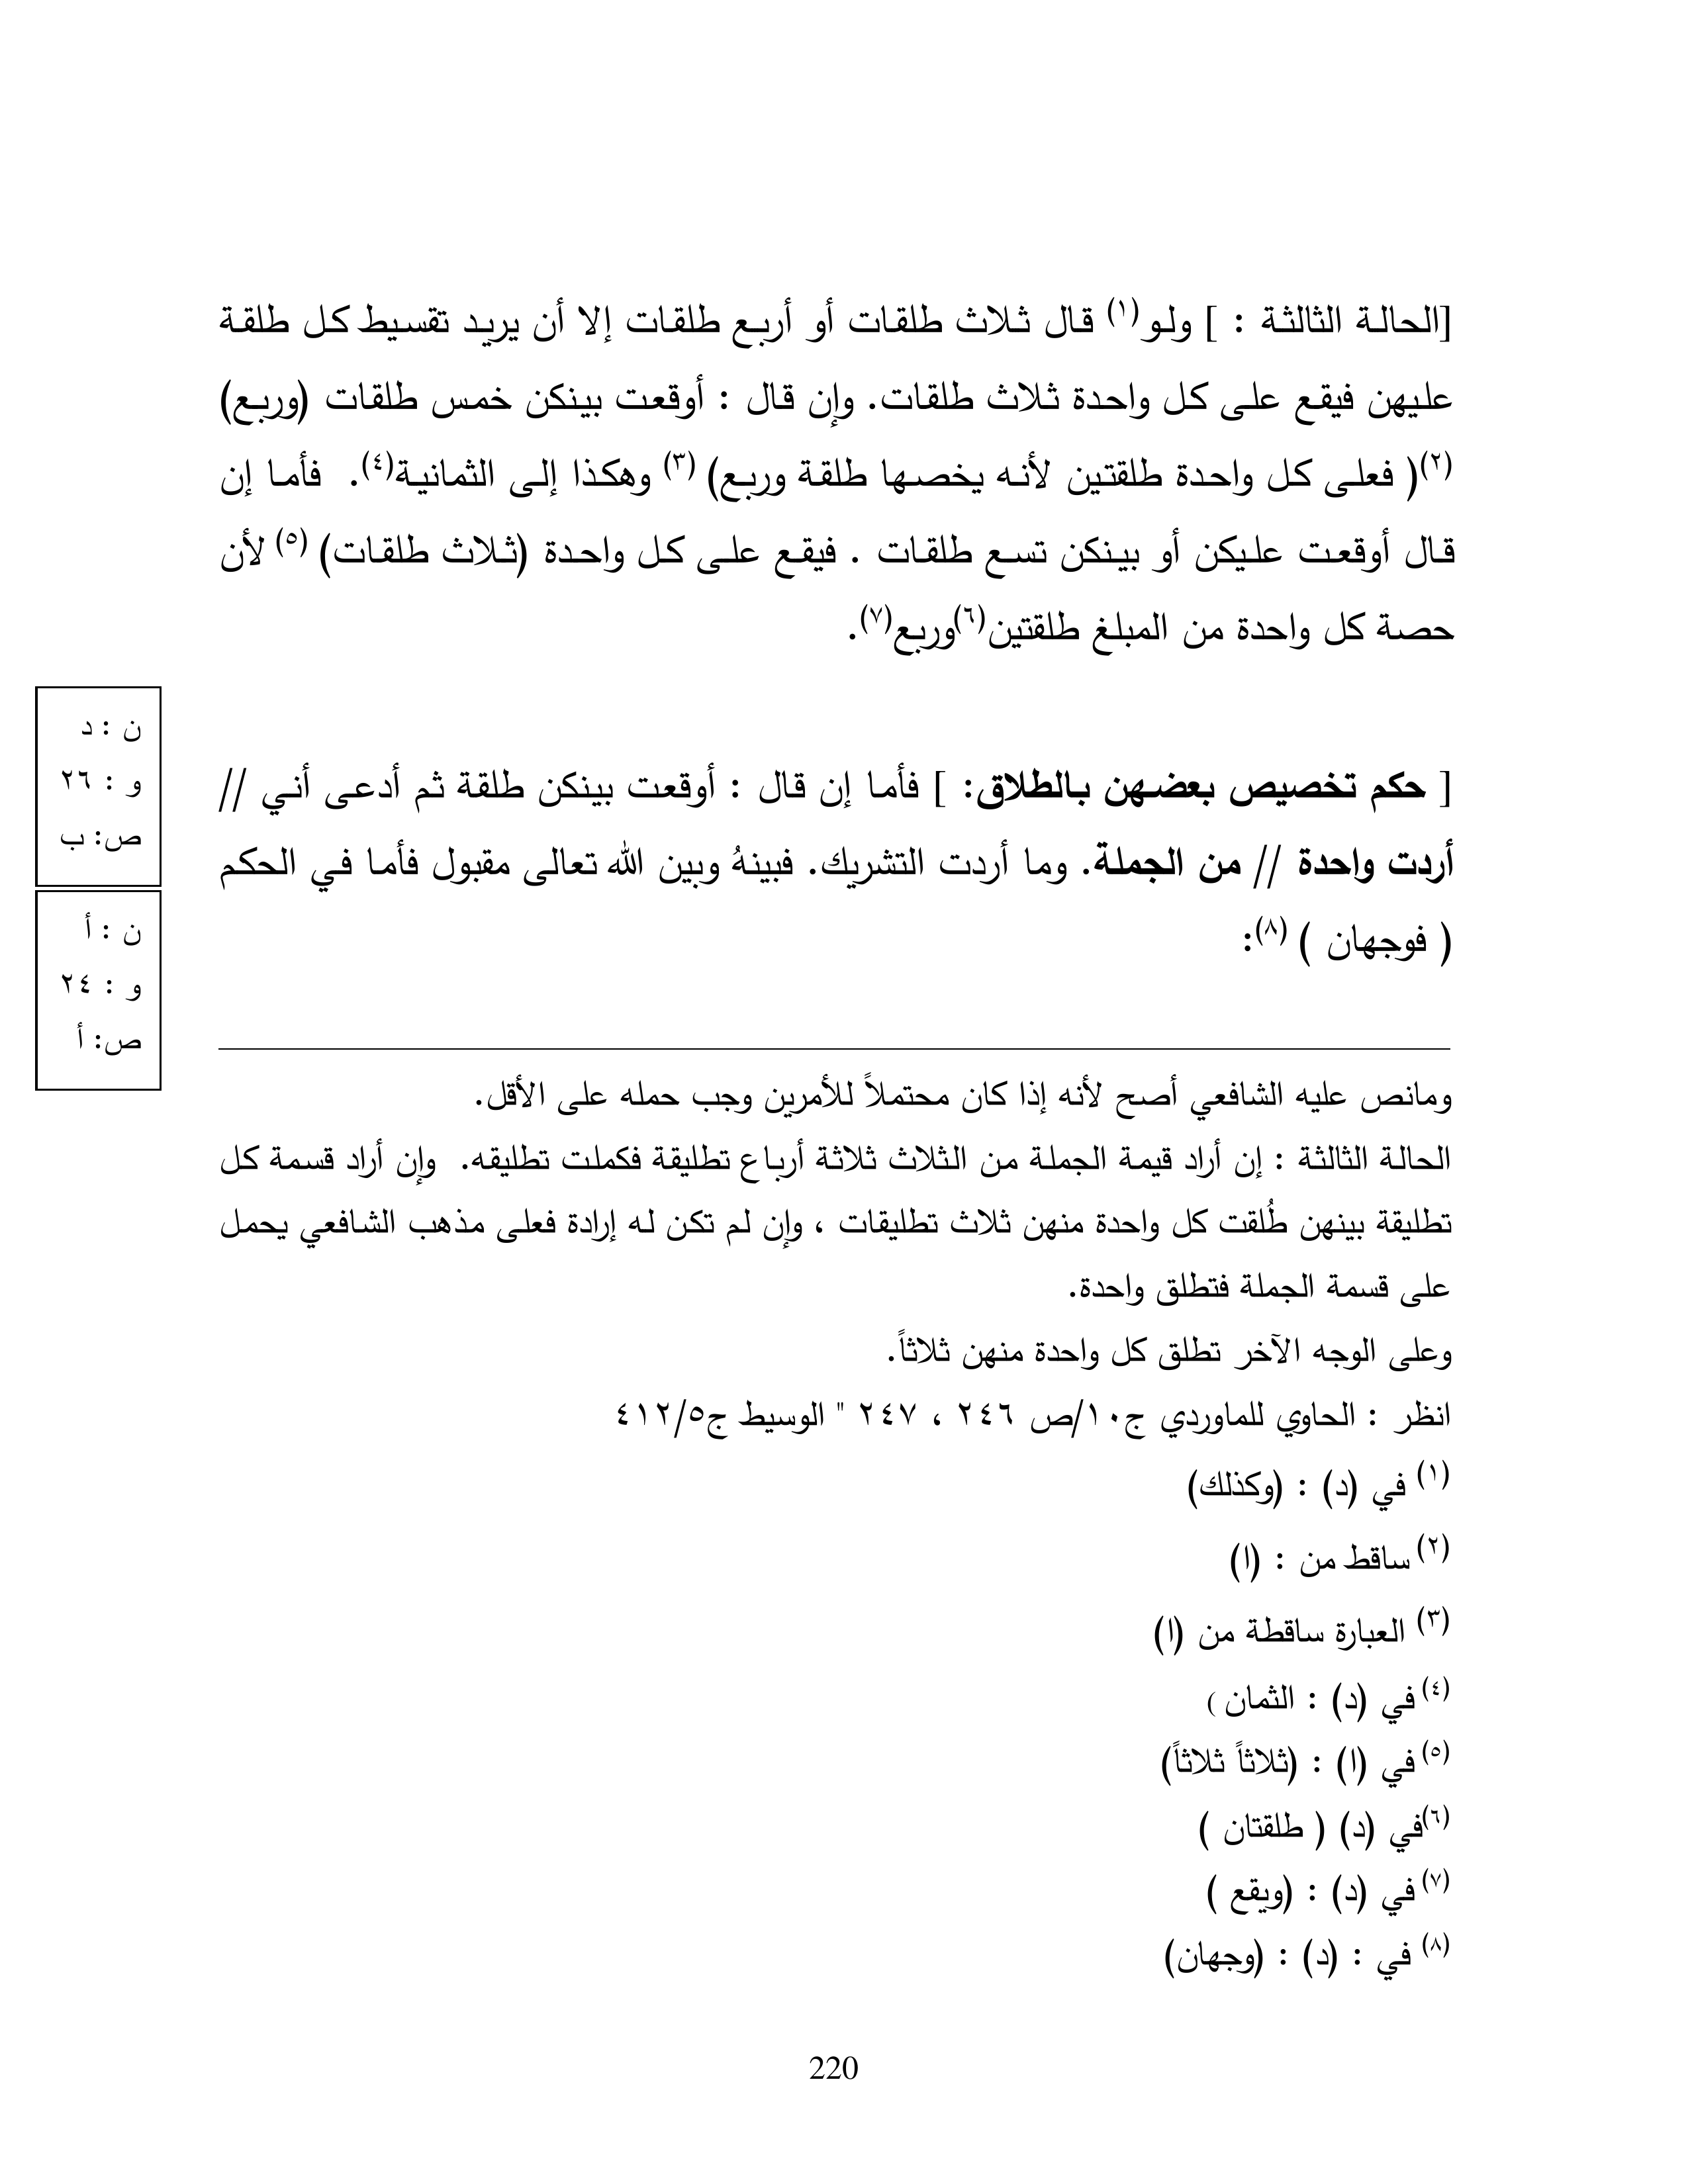 [الحالة الثالثة : ] ولو(١) قال ثلاث طلقات أو أربع طلقات إلا أن يريد تقسيط كل طلقة
عليهن فيقع على كل واحدة ثلاث طلقات. وإن قال : أوقعت بينكن خمس طلقات (وربع)
(٢)( فعلى كل واحدة طلقتين لأنه يخصها طلقة وربع) (٣) وهكذا إلى الثمانية(٤). فأما إن
قال أوقعت عليكن أو بينكن تسع طلقات . فيقع على كل واحدة (ثلاث طلقات) (٥) لأن
حصة كل واحدة من المبلغ طلقتين(٦)وربع(٧).
[ حكم تخصيص بعضهن بالطلاق: ] فأما إن قال : أوقعت بينكن طلقة ثم أدعى أني //
أردت واحدة // من الجملة. وما أردت التشريك. فبينهُ وبين الله تعالى مقبول فأما في الحكم
( فوجهان ) (٨):
ن : د
و : ٢٦
ص: ب
ن : أ
و : ٢٤
ص: أ
ومانص عليه الشافعي أصح لأنه إذا كان محتملاً للأمرين وجب حمله على الأقل.
الحالة الثالثة : إن أراد قيمة الجملة من الثلاث ثلاثة أرباع تطليقة فكملت تطليقه. وإن أراد قسمة كل
تطليقة بينهن طُلقت كل واحدة منهن ثلاث تطليقات ، وإن لم تكن له إرادة فعلى مذهب الشافعي يحمل
على قسمة الجملة فتطلق واحدة.
وعلى الوجه الآخر تطلق كل واحدة منهن ثلاثاً.
انظر : الحاوي للماوردي ج١٠/ص ٢٤٦ ، ٢٤٧ " الوسيط ج٤١٢/٥
(١) في (د) : (وكذلك)
(٢) ساقط من : (ا)
(٣) العبارة ساقطة من (ا)
(٤) في (د) : الثمان )
(٥) في (ا) : (ثلاثاً ثلاثاً)
(٦)في (د) ( طلقتان )
(٧) في (د) : (ويقع )
(٨) في : (د) : (وجهان)
220